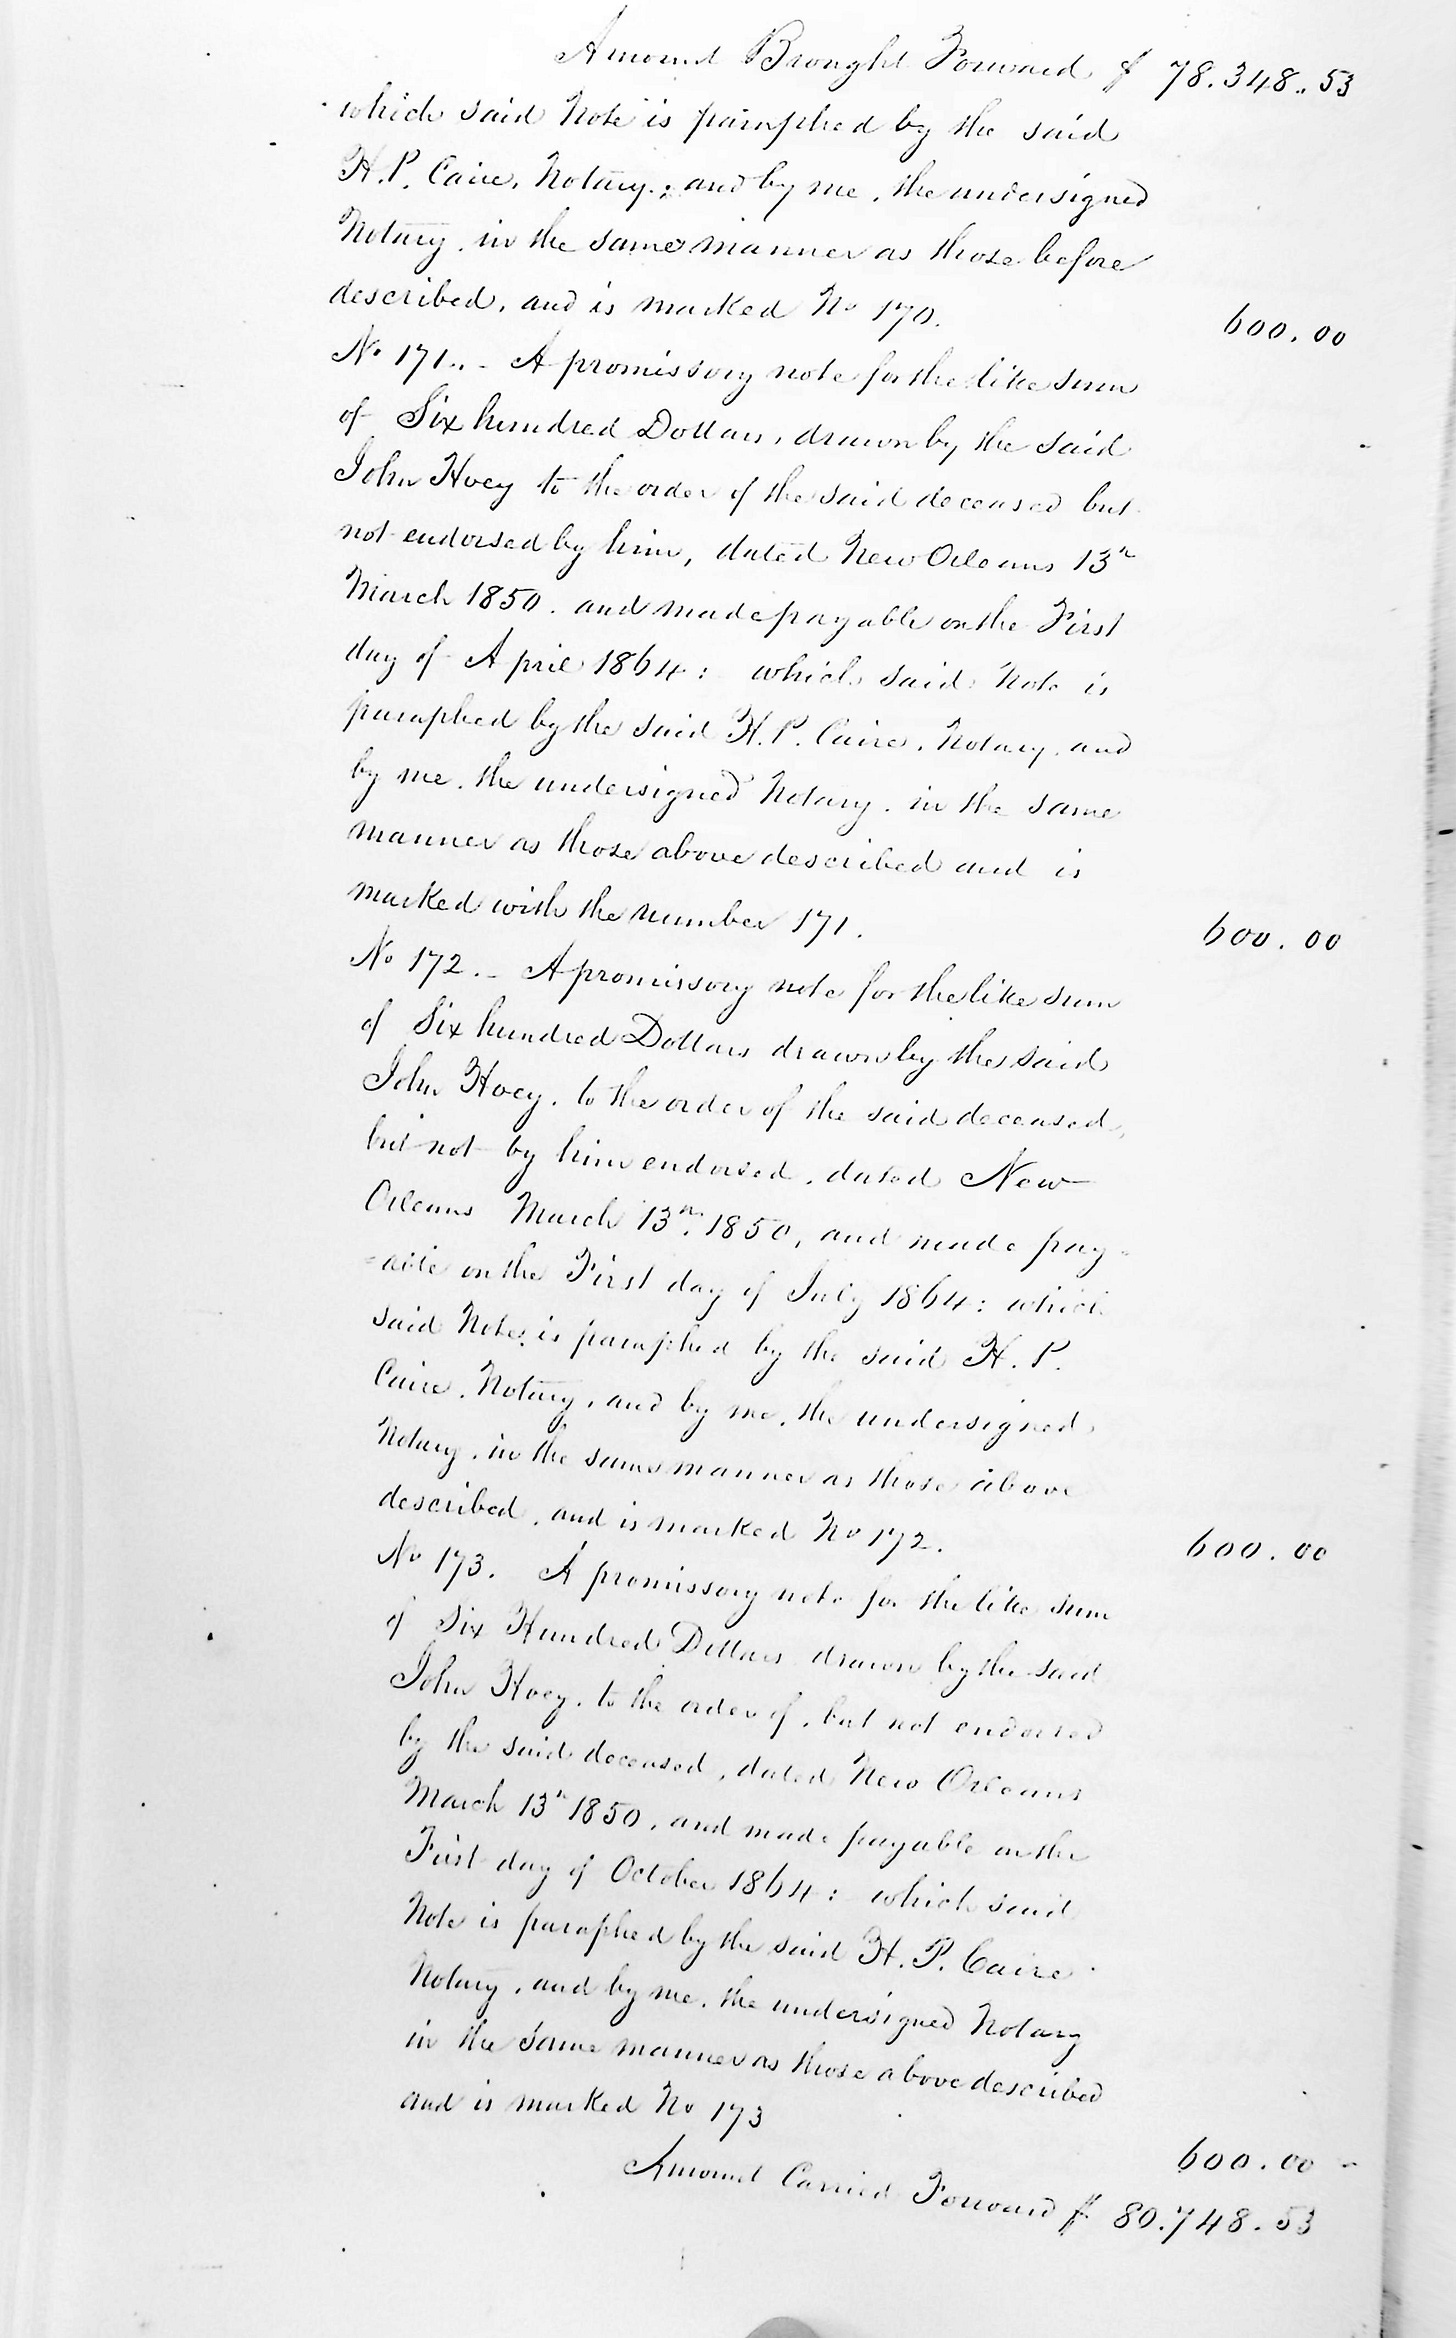 Amount Brought Forward $ 78.348.. 53
which said Note is paraphed by the said
H. P. Caire, Notary; and by me, the undersigned
Notary, in the same manner as those before
described, and is marked No 170.
600.00
No 171.. - A promissory note for the like sum
of Six hundred Dollars, drawn by the said
John Hoey to the order of the said deceased but
not endorsed by him, dated New Orleans 13th
March 1850. and made payable on the First
day of April 1864: which said Note is
paraphed by the said H. P. Caire, Notary, and
by me, the undersigned Notary, in the same
manner as those above described and is
marked with the number 171.
600.00
No 172. - A promissory note for the like sum
of Six hundred Dollars drawn by the said
John Hoey, to the order of the said deceased,
but not by him endorsed, dated New
Orleans March 13th 1850, and made pay-
-able on the First day of July 1864: which
said Note is paraphed by the said H. P.
Caire, Notary, and by me, the undersigned
Notary, in the same manner as those above
described, and is marked No 172.
600.00
No 173. A promissory note for the like sum
of Six Hundred Dollars drawn by the said
John Hoey, to the order of, but not endorsed
by the said deceased, dated New Orleans
March 13th 1850, and made payable on the
First day of October 1864: which said
Note is paraphed by the said H. P. Caire
Notary, and by me, the undersigned Notary
in the same manner as those above described
and is marked No 173
600.00 -
Amount Carried Forward $ 80.748.53